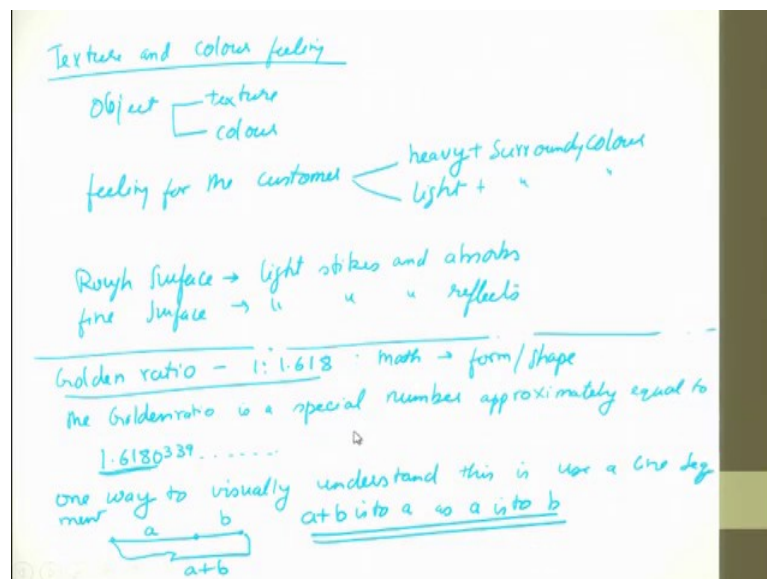 Texture and colour feeling
Object texture
colour
feeling for the customer heavy + Surroundy colour
light + " "
Rough Surface → light stikes and absorbs
fine Surface → " " " reflects
Golden ratio - 1:1.618 math → form/shape
The Goldenratio is a special number approximately equal to
1.6180339.......
one way to visually understand this is use a line seg
ment a b a+b is to a as a is to b
a+b